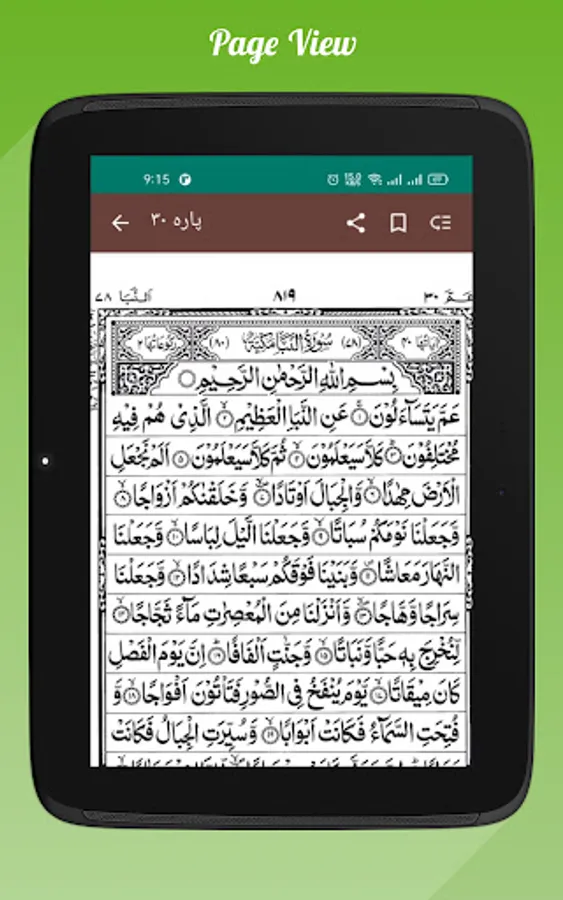 Page View
9:15
پارہ ۳۰
عَمَّ ۳۰
۸۱۹
اَلنَّبَا ۷۸
اٰیاتھا ۴۰
(۷۸) سُوْرَةُ النَّبَاِ مَكِّيَّةٌ (۸۰)
رکوعاتھا ۲
بِسْمِ اللهِ الرَّحْمٰنِ الرَّحِيْمِ
عَمَّ يَتَسَآءَلُوْنَ ۝۱ عَنِ النَّبَاِ الْعَظِيْمِ ۝۲ الَّذِيْ هُمْ فِيْهِ
مُخْتَلِفُوْنَ ۝۳ كَلَّا سَيَعْلَمُوْنَ ۝۴ ثُمَّ كَلَّا سَيَعْلَمُوْنَ ۝۵ اَلَمْ نَجْعَلِ
الْاَرْضَ مِهٰدًا ۝۶ وَّالْجِبَالَ اَوْتَادًا ۝۷ وَّخَلَقْنٰكُمْ اَزْوَاجًا ۝۸
وَّجَعَلْنَا نَوْمَكُمْ سُبَاتًا ۝۹ وَّجَعَلْنَا الَّيْلَ لِبَاسًا ۝۱۰ وَّجَعَلْنَا
النَّهَارَ مَعَاشًا ۝۱۱ وَّبَنَيْنَا فَوْقَكُمْ سَبْعًا شِدَادًا ۝۱۲ وَّجَعَلْنَا
سِرَاجًا وَّهَّاجًا ۝۱۳ وَّاَنْزَلْنَا مِنَ الْمُعْصِرٰتِ مَآءً ثَجَّاجًا ۝۱۴
لِّنُخْرِجَ بِهٖ حَبًّا وَّنَبَاتًا ۝۱۵ وَّجَنّٰتٍ اَلْفَافًا ۝۱۶ اِنَّ يَوْمَ الْفَصْلِ
كَانَ مِيْقَاتًا ۝۱۷ يَّوْمَ يُنْفَخُ فِي الصُّوْرِ فَتَاْتُوْنَ اَفْوَاجًا ۝۱۸ وَّ
فُتِحَتِ السَّمَآءُ فَكَانَتْ اَبْوَابًا ۝۱۹ وَّسُيِّرَتِ الْجِبَالُ فَكَانَتْ